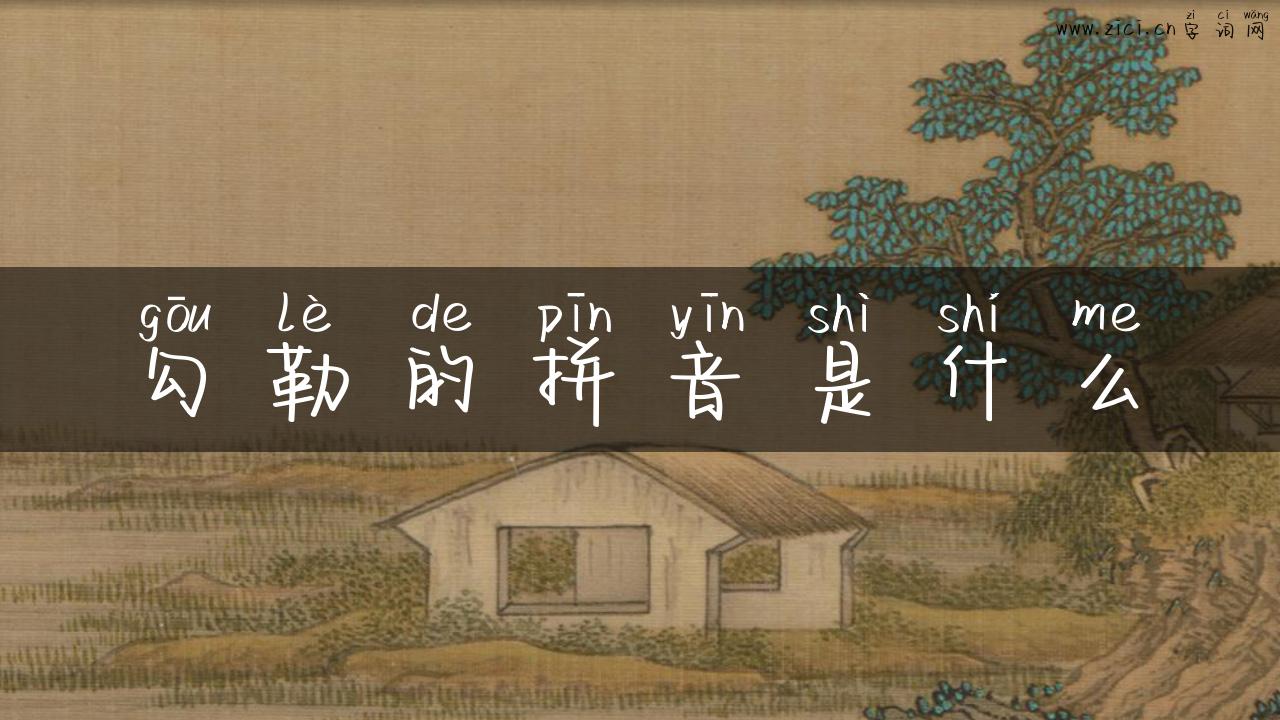 zì cí wǎng
www.zici.cn 字 词 网
gōu lè de pīn yīn shì shí me
勾 勒 的 拼 音 是 什 么